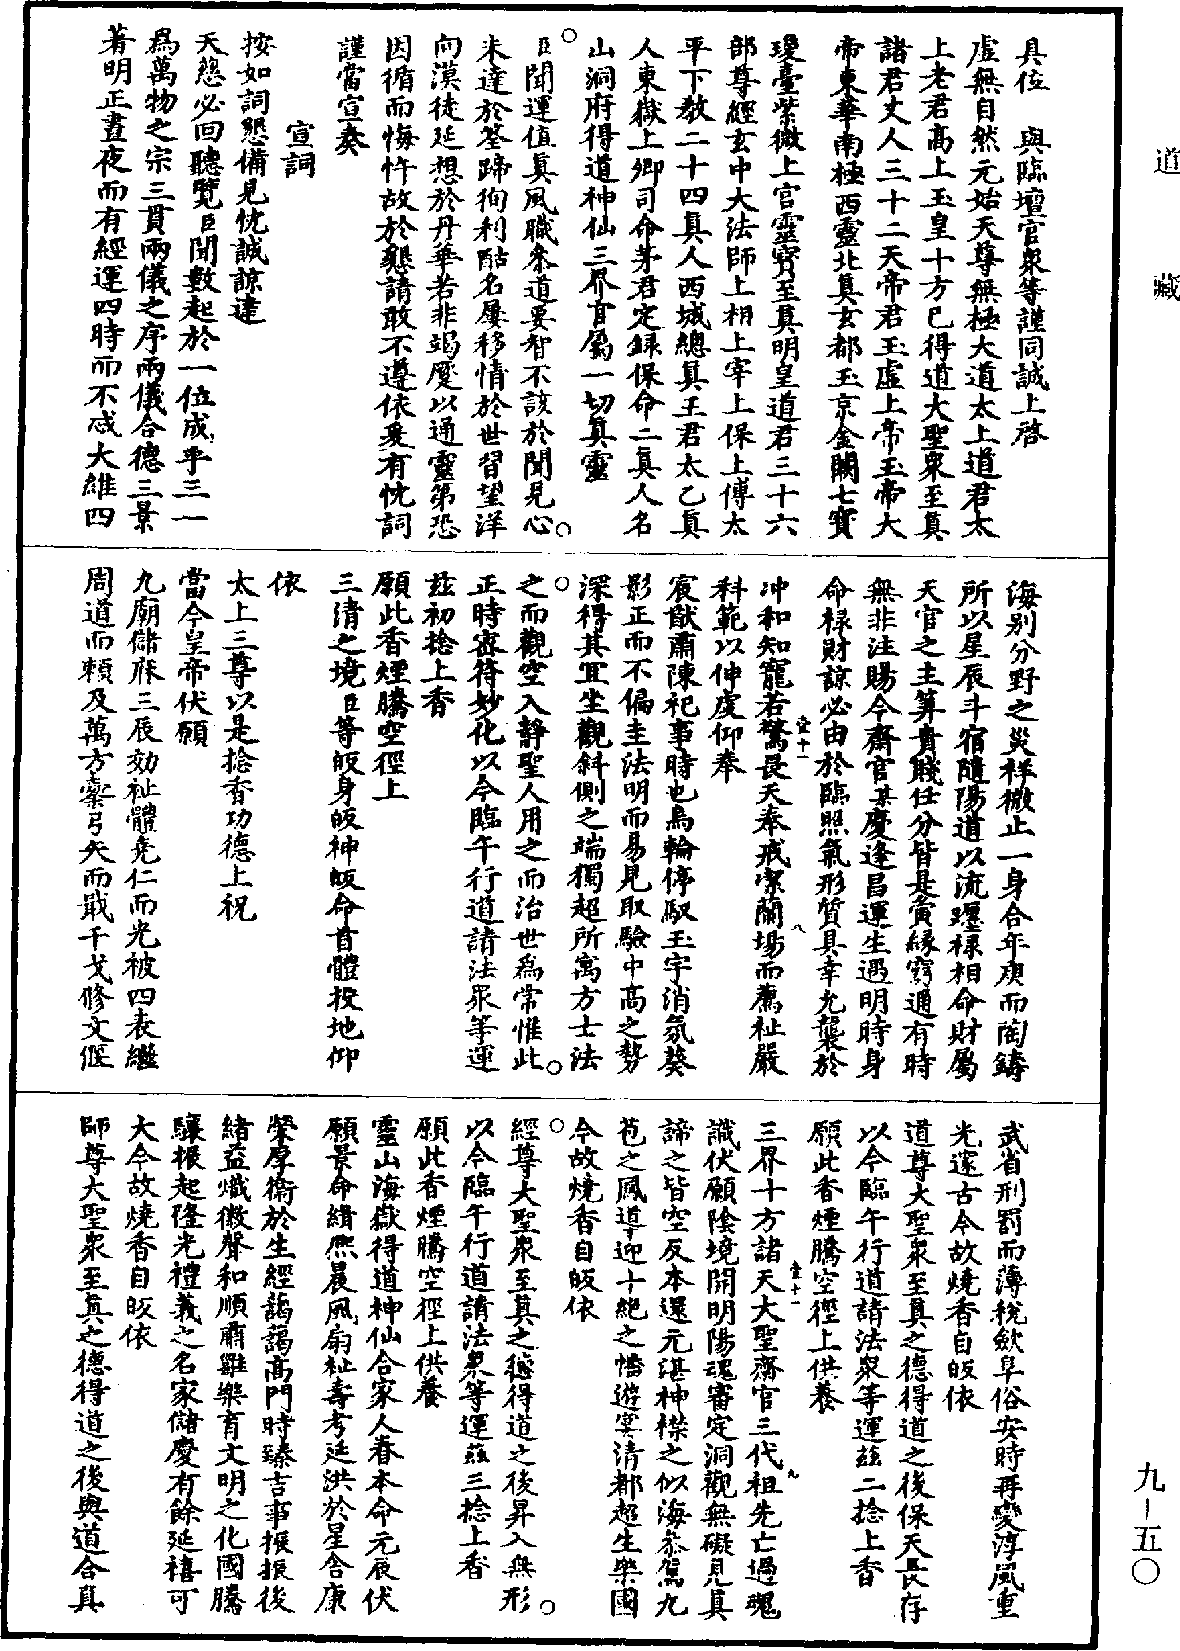 道藏
具位　與臨壇官衆等謹同誠上啓
虛無自然元始天尊無極大道太上道君太
上老君高上玉皇十方已得道大聖衆至真
諸君丈人三十二天帝君玉虛上帝玉帝大
帝東華南極西靈北真玄都玉京金闕七寶
瓊臺紫微上宮靈寶至真明皇道君三十六
部尊經玄中大法師上相上宰上保上傅太
平下教二十四真人西城總真王君太乙真
人東嶽上卿司命茅君定錄保命二真人名
山洞府得道神仙三界官屬一切真靈
臣聞運值真風職忝道要智不該於聞見心
未達於筌蹄徇利酤名屢移情於世習望洋
向漠徒延想於丹華若非竭虔以通靈第恐
因循而悔忤故於懇請敢不遵依爰有忱詞
謹當宣奏
宣詞
按如詞懇備見忱誠諒達
天慈必回聽覽臣聞數起於一位成乎三一
爲萬物之宗三貫兩儀之序兩儀合德三景
著明正晝夜而有經運四時而不忒大維四
海別分野之災祥微止一身合年庚而陶鑄
所以星辰斗宿隨陽道以流躔祿相命財屬
天官之主筭貴賤任分皆是夤緣窮通有時
無非注賜今齋官某慶逢昌運生遇明時身
命祿財諒必由於臨照氣形質具幸允襲於
冲和知寵若驚畏天奉戒潔蘭場而薦祉嚴
科範以伸虔仰奉
宸猷肅陳祀事時也烏輪停馭玉宇消氛葵
影正而不偏圭法明而易見取驗中高之勢
深得其宜坐觀斜側之端獨超所寓方士法
之而觀空入靜聖人用之而治世爲常惟此
正時審符妙化以今臨午行道諸法衆等運
茲初捻上香
願此香煙騰空徑上
三清之境臣等皈身皈神皈命首體投地仰
依
太上三尊以是捻香功德上祝
當今皇帝伏願
九廟儲庥三辰効祉體堯仁而光被四表繼
周道而賴及萬方櫜弓矢而戢干戈修文偃
武省刑罰而薄稅斂阜俗安時再變淳風重
光邃古今故燒香自皈依
道尊大聖衆至真之德得道之後保天長存
以今臨午行道諸法衆等運茲二捻上香
願此香煙騰空徑上供養
三界十方諸天大聖齋官三代祖先亡過魂
識伏願陰境開明陽魂審定洞觀無礙見真
諦之皆空反本還元湛神襟之似海恭駕九
苞之鳳導迎十絕之幡遊宴清都超生樂國
今故燒香自皈依
經尊大聖衆至真之德得道之後昇入無形
以今臨午行道諸法衆等運茲三捻上香
願此香煙騰空徑上供養
靈山海嶽得道神仙合家人眷本命元辰伏
願景命緝熙晨風扇祉壽考延洪於星舍康
榮厚衞於生經藹藹高門時臻吉事振振後
緒益熾徽聲和順肅雝樂育文明之化國騰
驤振起隆光禮義之名家儲慶有餘延禧可
大今故燒香自皈依
師尊大聖衆至真之德得道之後與道合真
九-五〇